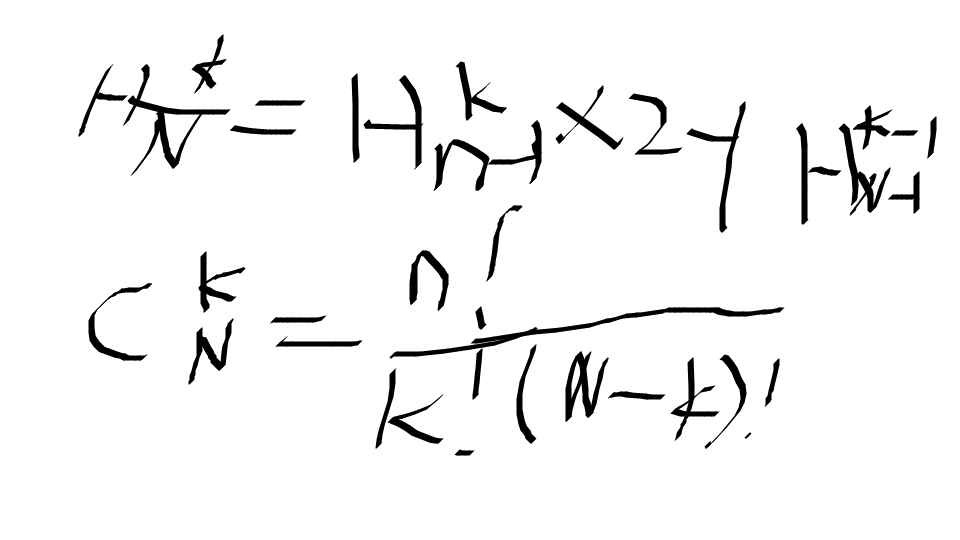 H_N^k = H_{n-1}^k × 2 + H_{N-1}^{k-1}
C_N^k = n! / k! (N-k)!